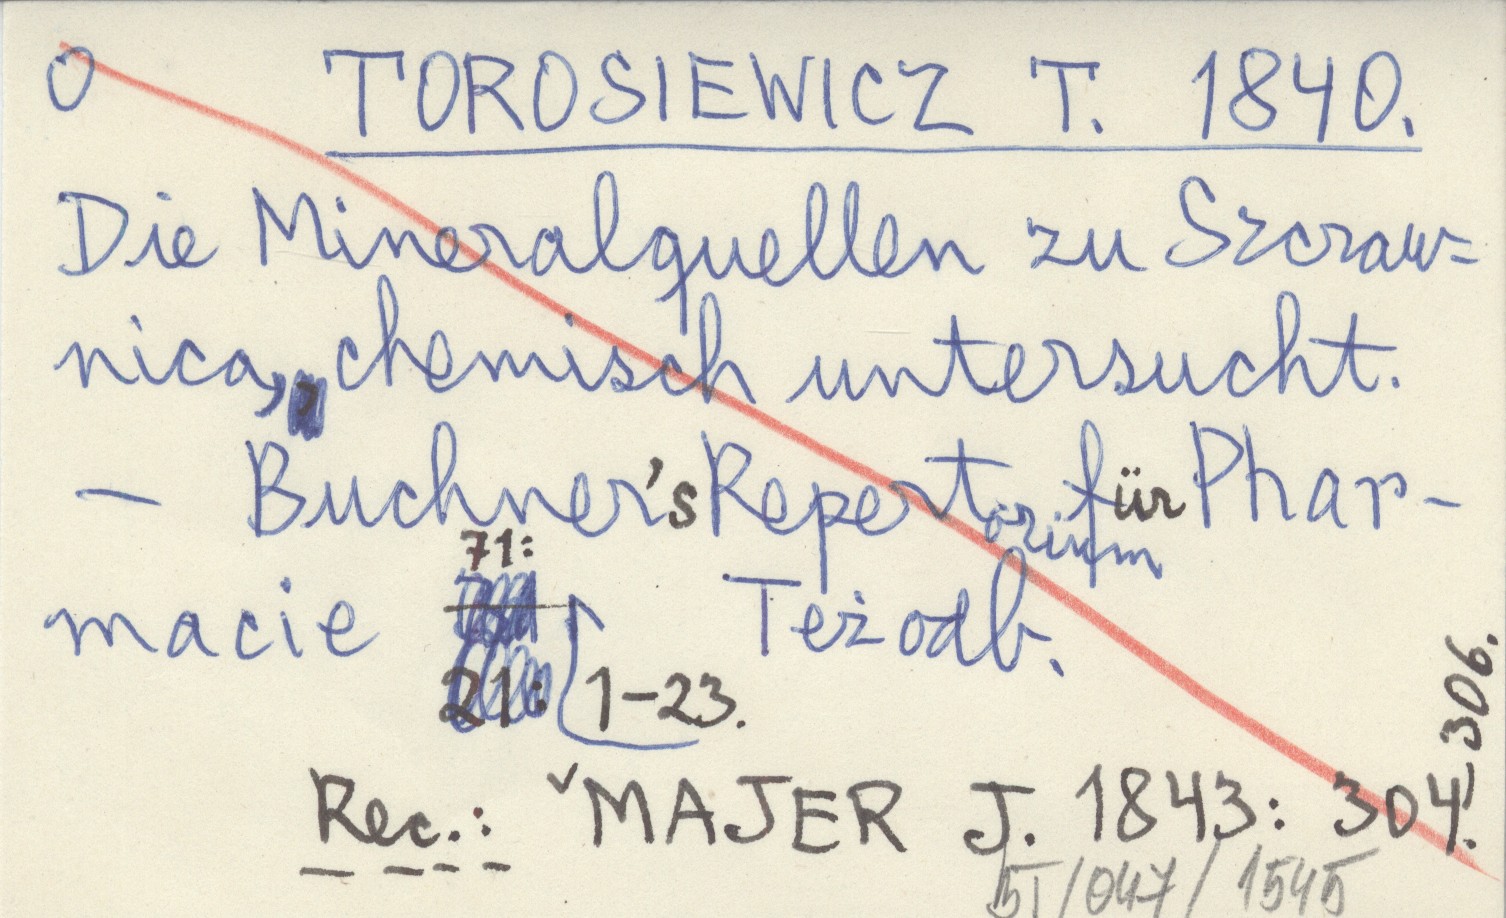 O TOROSIEWICZ T. 1840.
Die Mineralquellen zu Szczaw=
nica, chemisch untersucht.
— Buchner's Repertorium für Phar-
macie 71: Też odb.
21: 1-23.
Rec.: MAJER J. 1843: 304-306.
5I/047/1545